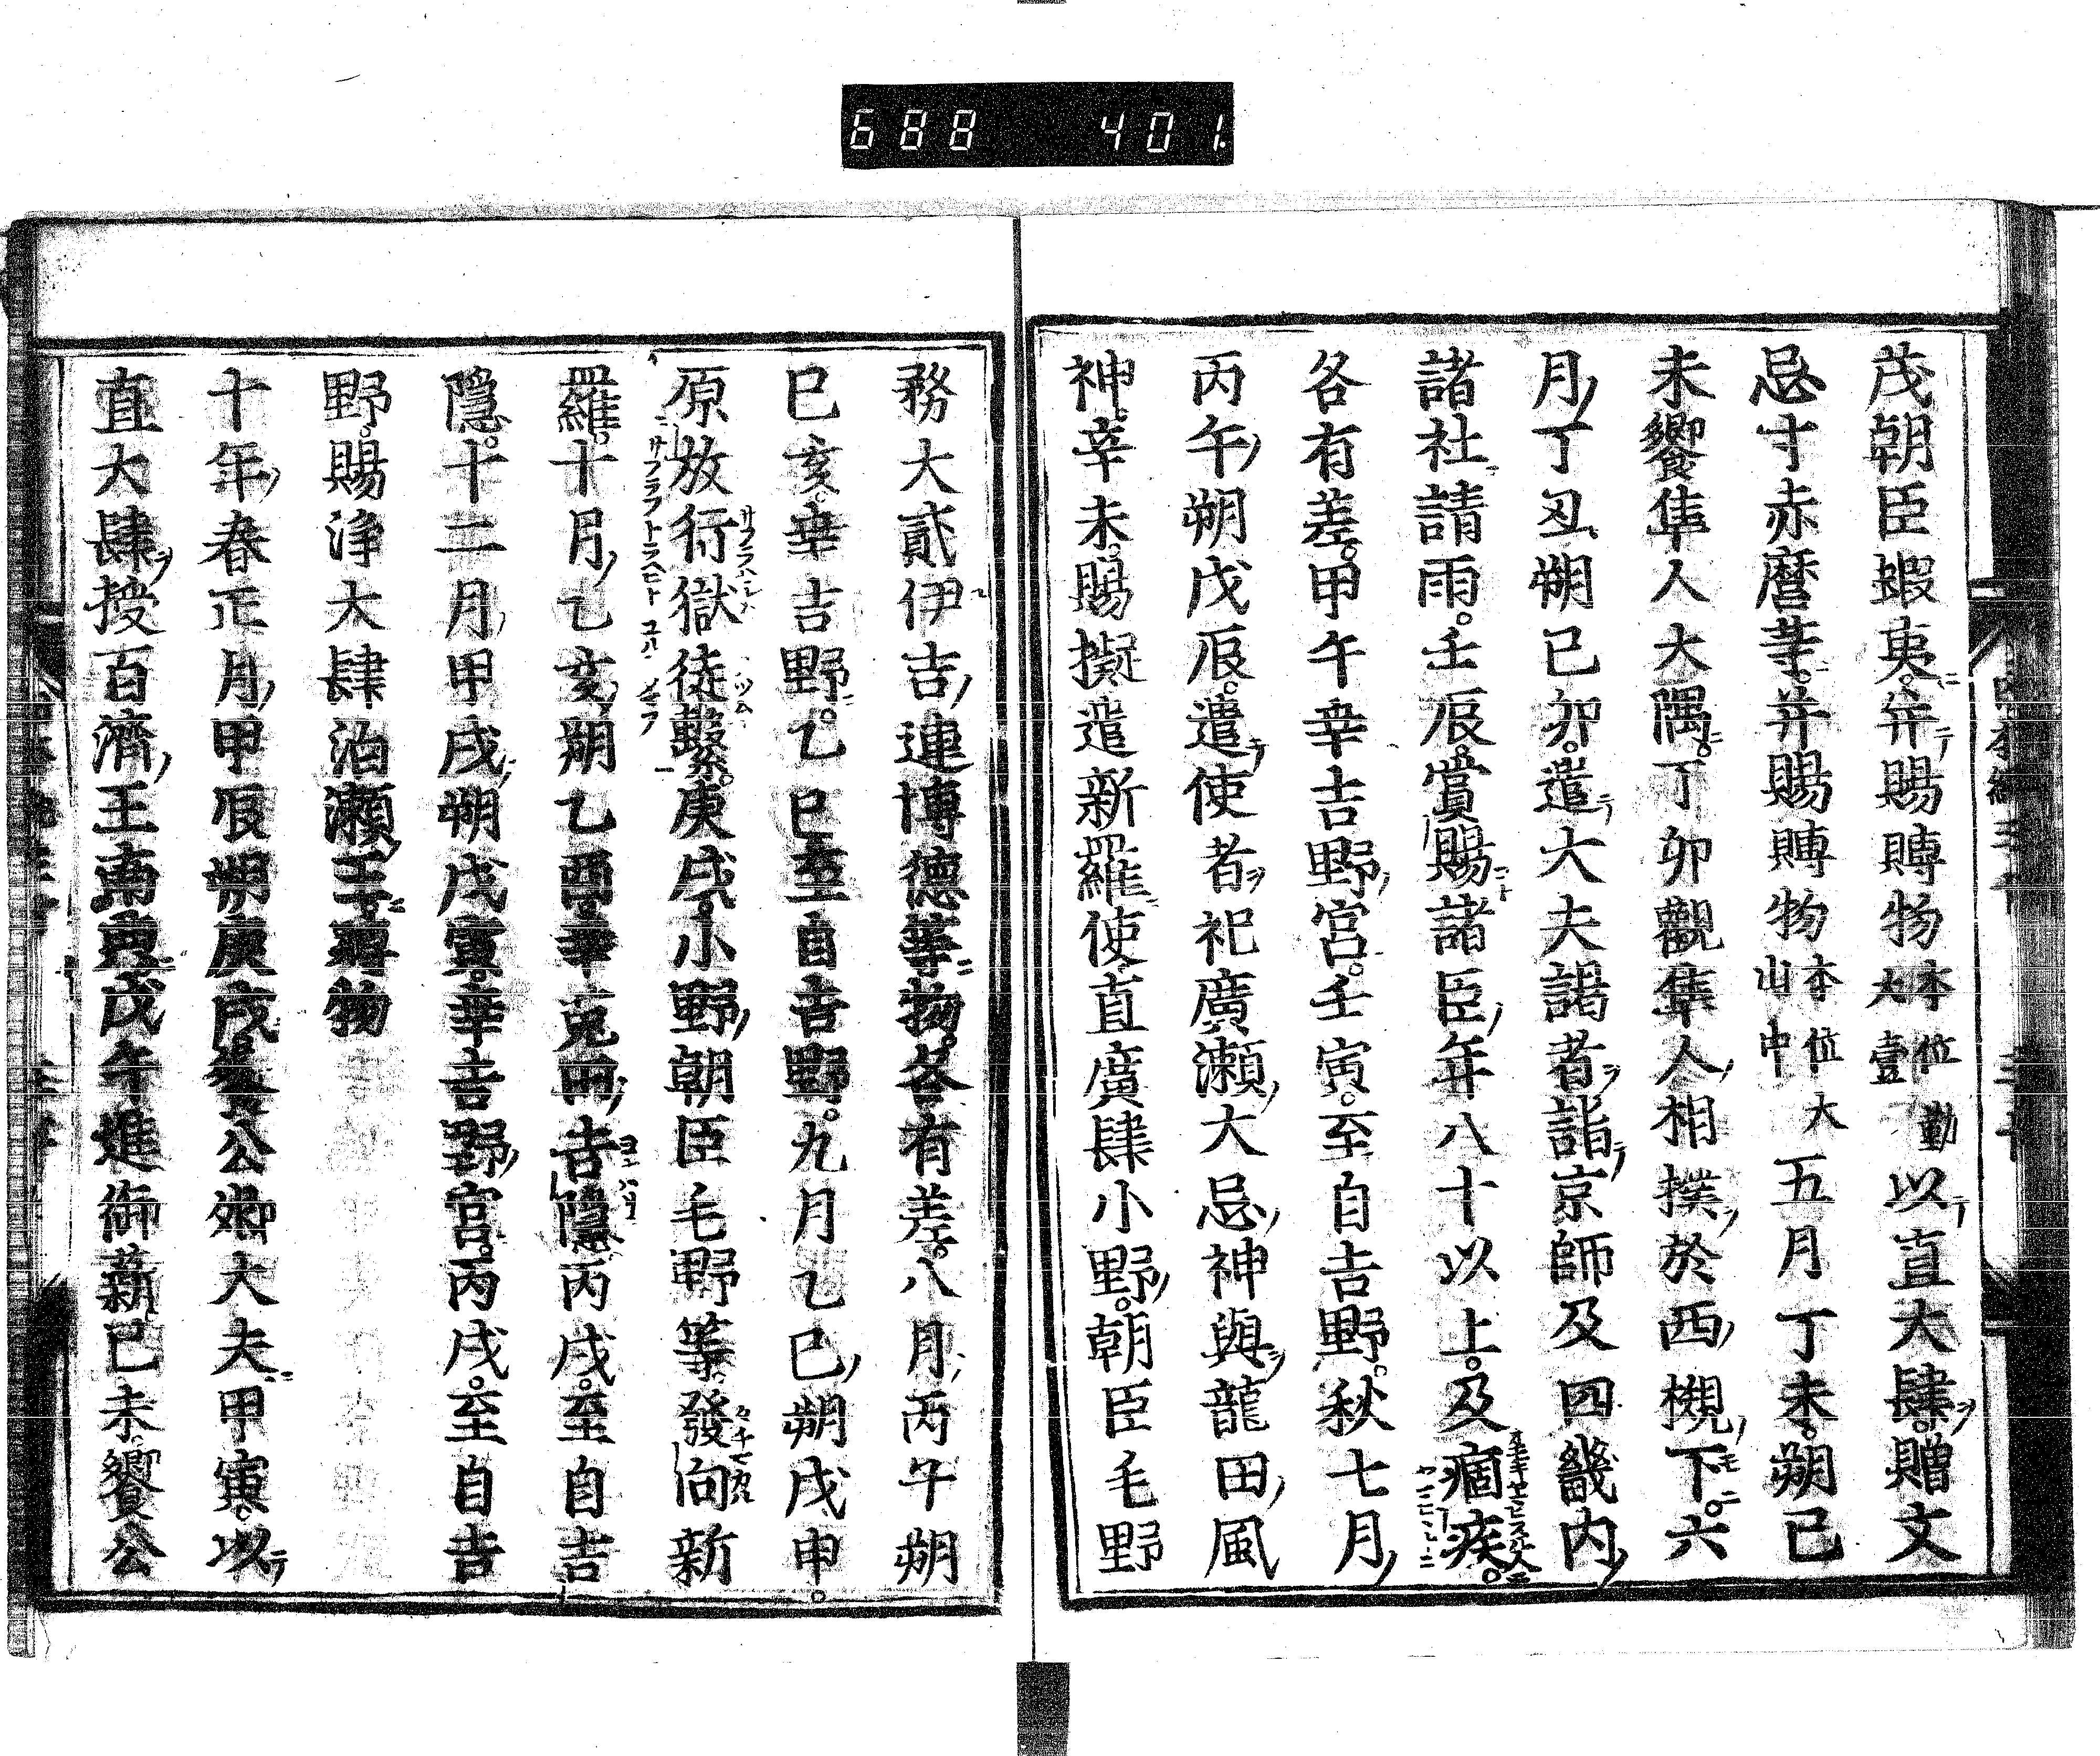 688 401
茂朝臣蝦夷并賜賻物本位勤大壹以直大肆贈文
忌寸赤麿等并賜賻物本位大山中五月丁未朔己
未饗隼人大隅丁卯觀隼人相撲於西槻下六
月丁丑朔己卯遣大夫謁者詣京師及四畿内
諸社請雨壬辰賞賜諸臣年八十以上及痼疾
各有差甲午幸吉野宮壬寅至自吉野秋七月
丙午朔戊辰遣使者祀廣瀬大忌神與龍田風
神辛未賜擬遣新羅使直廣肆小野朝臣毛野
務大貳伊吉連博德等物各有差八月丙午朔
己亥幸吉野乙巳至自吉野九月乙巳朔戊申
原放行獄徒繫庚戌小野朝臣毛野等發向新
羅十月乙亥朔乙酉幸菟田吉隱丙戌至自吉
隱十二月甲戌朔戊寅幸吉野宮丙戌至自吉
野賜淨大肆泊瀬王賻物
十年春正月甲辰朔庚戌饗公卿大夫甲寅以
直大肆授百濟王南典戊午進御薪己未饗公